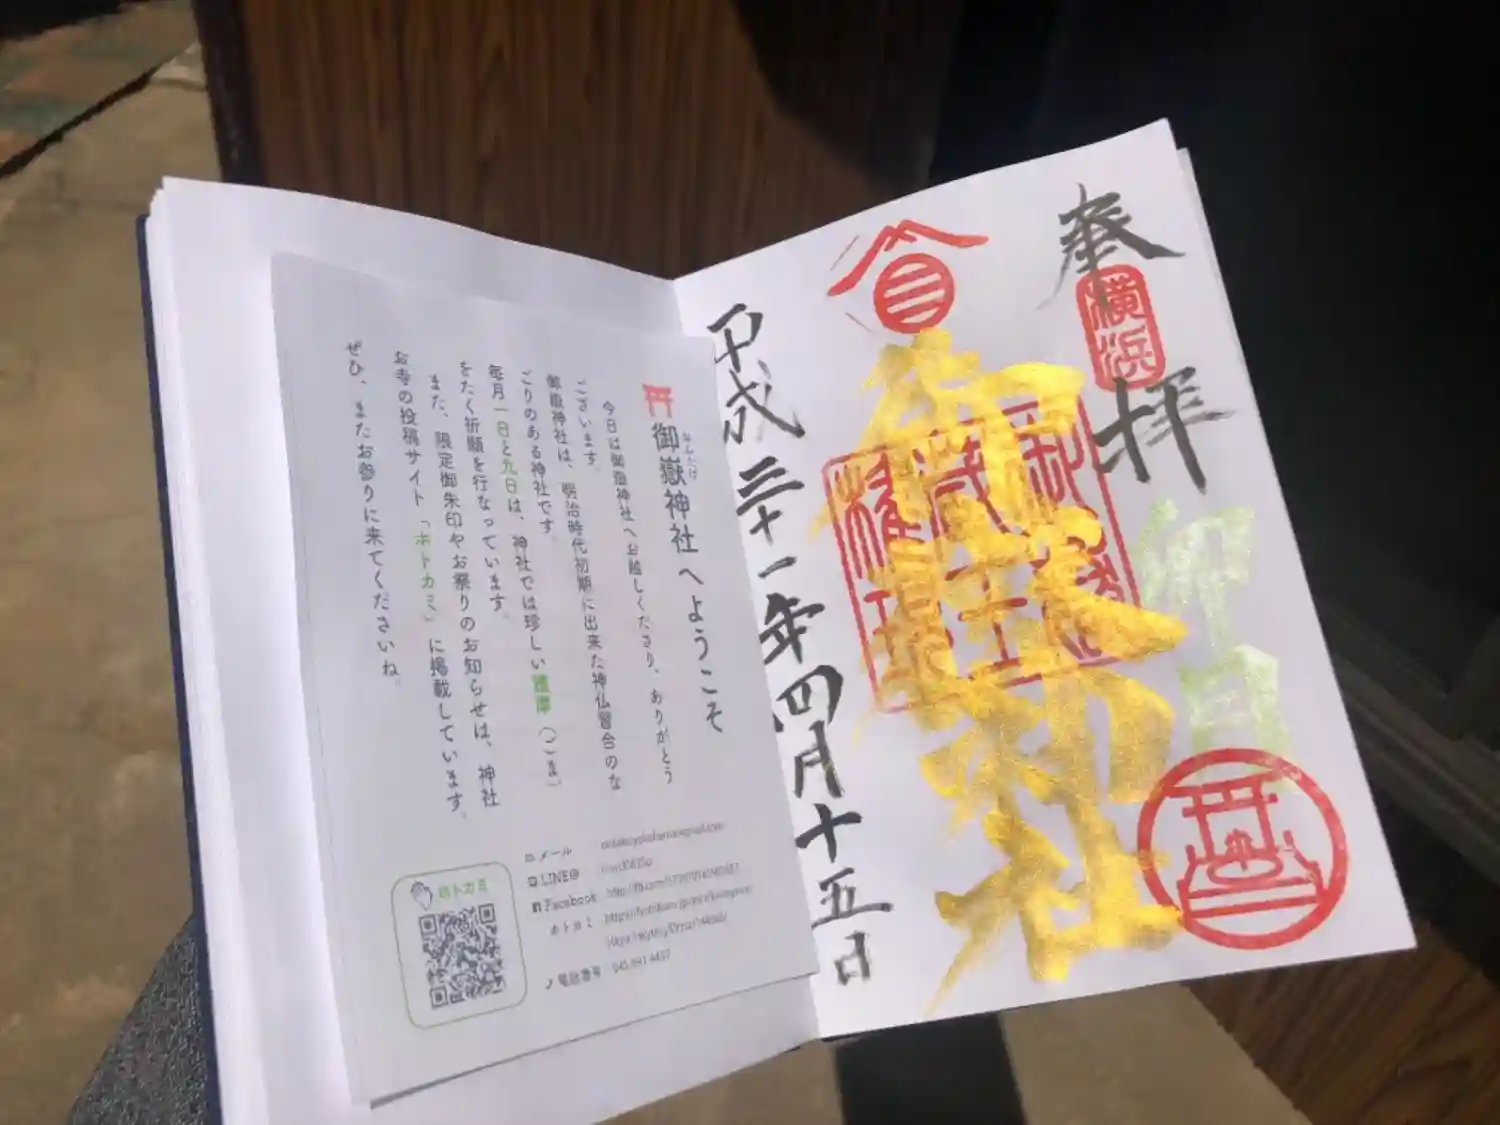 奉拝
横浜
御嶽神社
平成三十一年四月十五日
御嶽神社へようこそ
おんたけ
今日は御嶽神社へお越しくださり、ありがとう
ございます。
御嶽神社は、明治時代初期に出来た神仏習合のな
ごりのある神社です。
毎月一日と九日は、神社では珍しい護摩(ごま)
をたく祈願を行なっています。
また、限定御朱印やお祭りのお知らせは、神社
お寺の投稿サイト「ホトカミ」に掲載しています。
ぜひ、またお参りに来てくださいね。
ホトカミ
メール
LINE@
Facebook
ホトカミ
電話番号